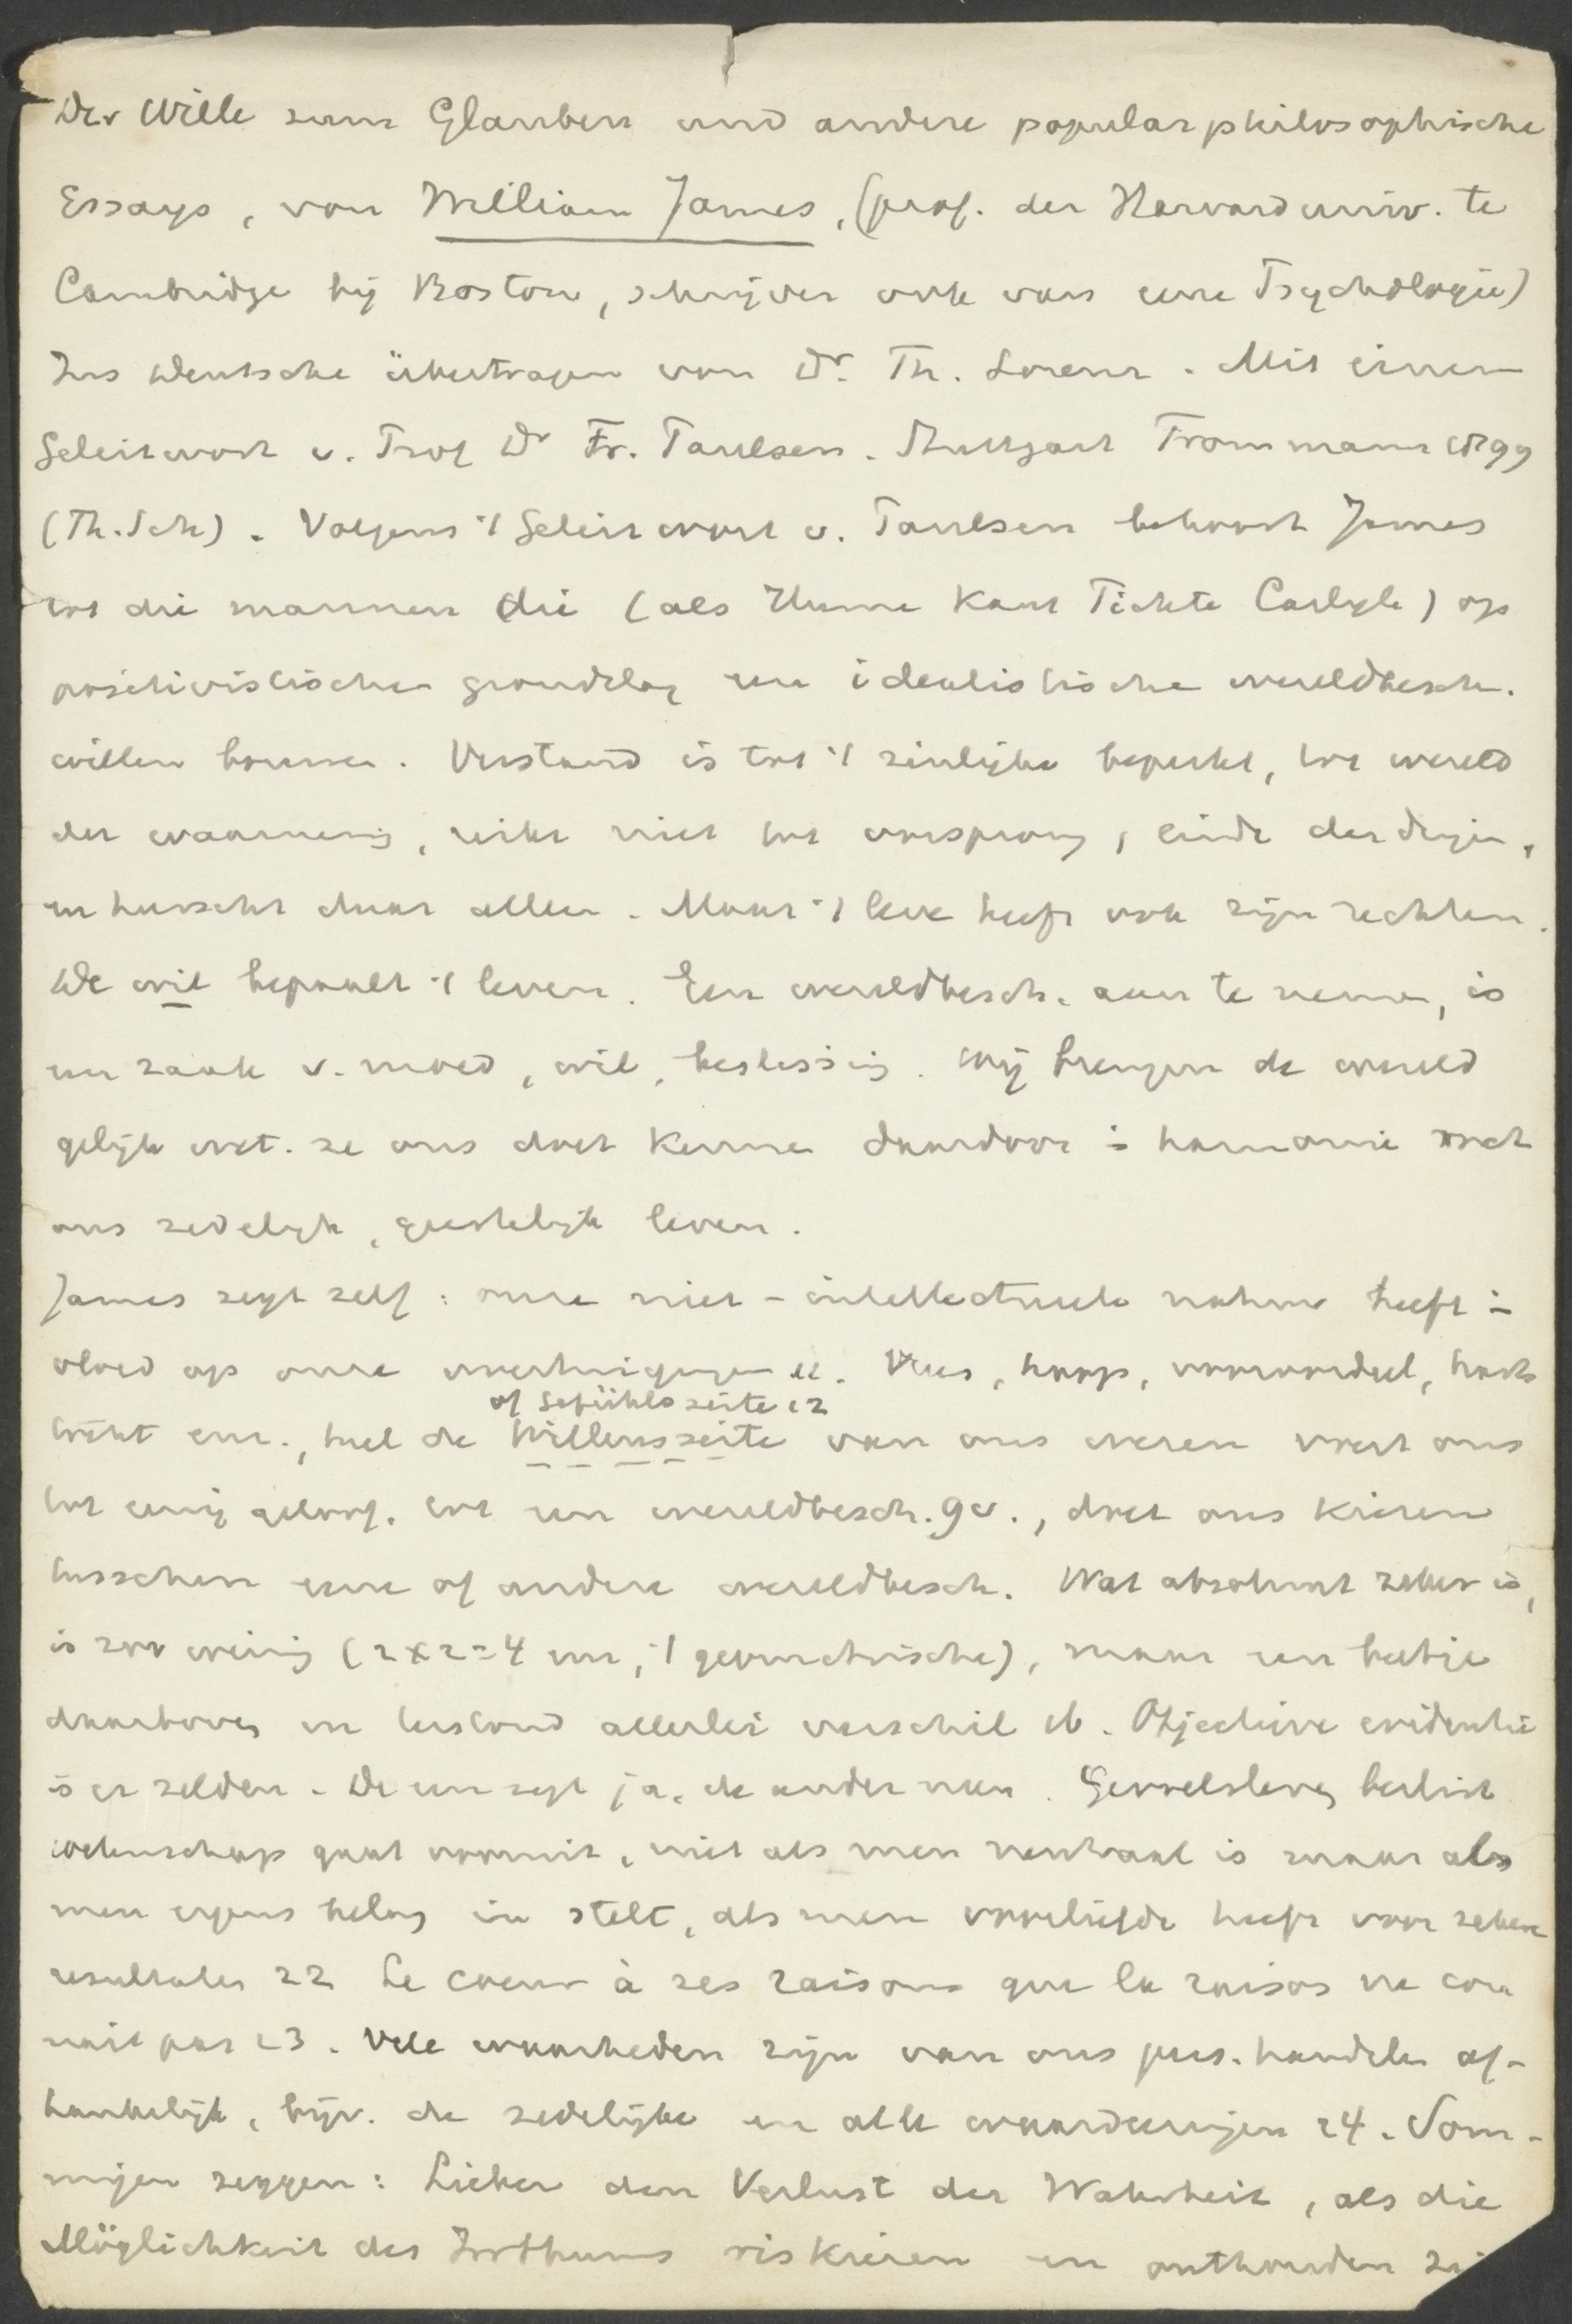 Der Wille zum Glauben und andere popularphilosophische
Essays, von William James, (prof. der Harvard univ. te
Cambridge bij Boston, schrijver ook van eene Psychologie)
Ins Deutsche übertragen von Dr. Th. Lorenz. Mit einem
Geleitwort v. Prof Dr Fr. Paulsen. Stuttgart Frommann 1899
(Th.Sch). Volgens 't Geleitwort v. Paulsen behoort James
tot die mannen die (als Hume Kant Fichte Carlyle) op
positivistischen grondslag een idealistische wereldbesch.
willen bouwen. Verstand is tot 't zinlijke beperkt, tot wereld
der waarneming, reikt niet tot oorsprong, einde der dingen,
en heerscht daar alleen. Maar 't leve heeft ook zijn rechten.
De wil bepaalt 't leven. Een wereldbesch. aan te nemen, is
een zaak v. moed, wil, beslissing. Wij brengen de wereld
gelijk wet. ze ons doet kennen daardoor in harmonie met
ons zedelijk, geestelijk leven.
James zegt zelf: onze niet-intellectueele natuur heeft in-
vloed op onze overtuigingen 11. Vrees, hoop, vooroordeel, harts
tocht enz., heel de Willensseite van ons wezen voert ons
of Gefühlsseite 12
tot eenig geloof. tot een wereldbesch. 9v., doet ons kiezen
tusschen eene of andere wereldbesch. Wat absoluut zeker is,
is zoo weinig (2x2=4 enz, 't geometrische), maar een beetje
daarboven en terstond allerlei verschil 16. Objective evidentie
is er zelden. De een zegt ja, de ander neen. Gevoelsleven beslist
wetenschap gaat vooruit, niet als men neutraal is maar als
men ergens belang in stelt, als men voorliefde heeft voor zekere
resultaten 22 Le coeur à ses raisons que la raison ne con
nait pas 23. Vele waarheden zijn van ons pers. handelen af-
hankelijk, bijv. de zedelijke en alle waardeeringen 24. Som-
migen zeggen: Lieber den Verlust der Wahrheit, als die
Möglichkeit des Irrthums riskieren en onthouden